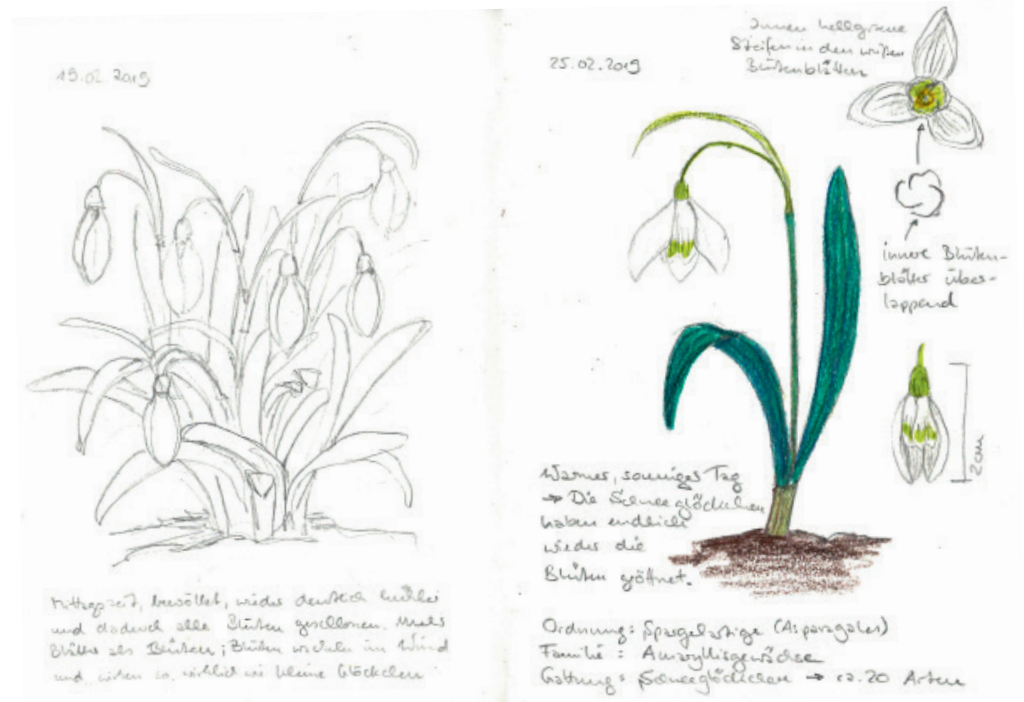 19.02.2019
Mittagszeit, bewölkt, wieder deutlich kühler
und dadurch alle Blüten geschlossen. Mehr
Blätter als Blüten; Blüten wackeln im Wind
und wirken so, wirklich wie kleine Glöckchen
25.02.2019
Innen hellgrüne
Streifen in den weißen
Blütenblättern
innere Blüten-
blätter über-
lappend
2cm
Warmer, sonniges Tag
→ Die Schneeglöckchen
haben endlich
wieder die
Blüten geöffnet.
Ordnung: Spargelartige (Asparagales)
Familie: Amaryllisgewächse
Gattung: Schneeglöckchen → ca. 20 Arten